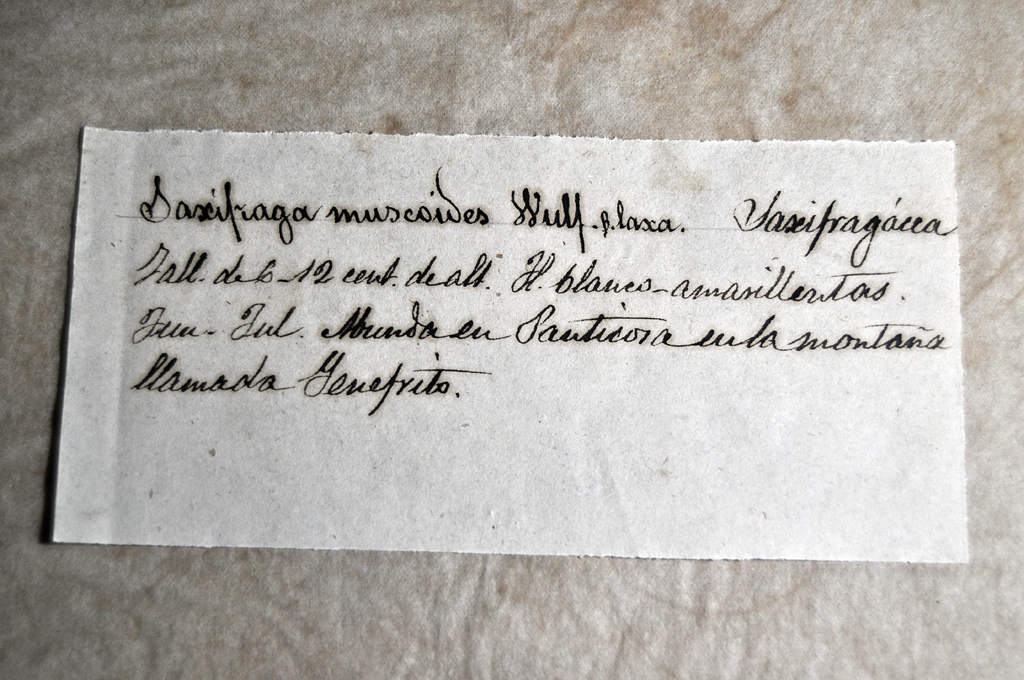 Saxifraga muscoides Wulf. β. laxa. Saxifragácea
Tall. de 6-12 cent. de alt. Fl. blanco-amarillentas.
Jun - Jul. Abunda en Panticosa en la montaña
llamada Yenefrito.